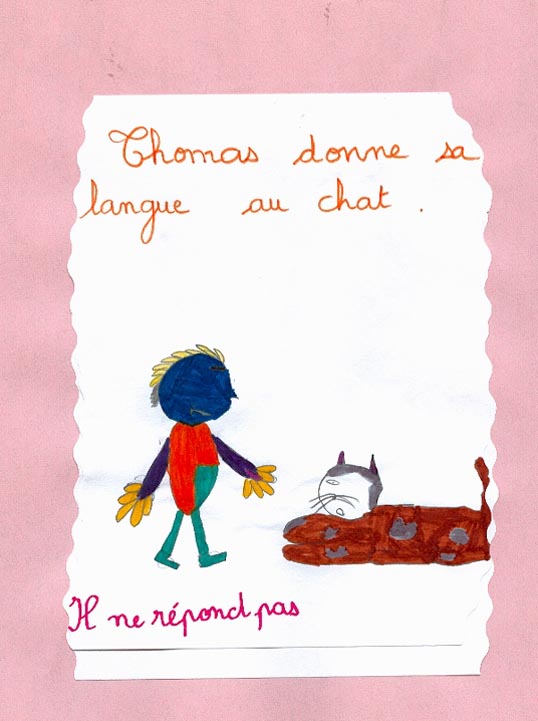 Thomas donne sa
langue au chat .
Il ne répond pas